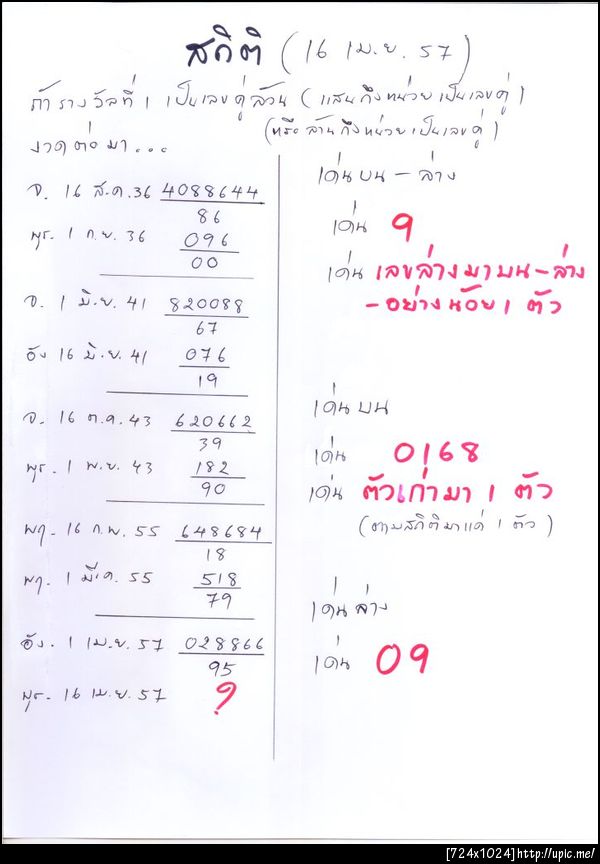 สถิติ (16 เม.ย. 57)
ถ้ารางวัลที่ 1 เป็นเลขคู่ล้วน (แสนถึงหน่วยเป็นเลขคู่)
(หรือล้านถึงหน่วยเป็นเลขคู่)
งวดต่อมา...
จ. 16 ส.ค. 36 4088644
86
พุธ. 1 ก.ย. 36 096
00
จ. 1 มิ.ย. 41 820088
67
อัง 16 มิ.ย. 41 076
19
จ. 16 ต.ค. 43 620662
39
พุธ. 1 พ.ย. 43 182
90
พฤ. 16 ก.พ. 55 648684
18
พฤ. 1 มี.ค. 55 518
79
อัง. 1 เม.ย. 57 028866
95
พุธ. 16 เม.ย. 57 ?
เด่นบน - ล่าง
เด่น 9
เด่น เลขล่างมาบน-ล่าง
-อย่างน้อย 1 ตัว
เด่นบน
เด่น 0168
เด่น ตัวเก่ามา 1 ตัว
(ตามสถิติมาแค่ 1 ตัว)
เด่นล่าง
เด่น 09
[724x1024]http://upic.me/